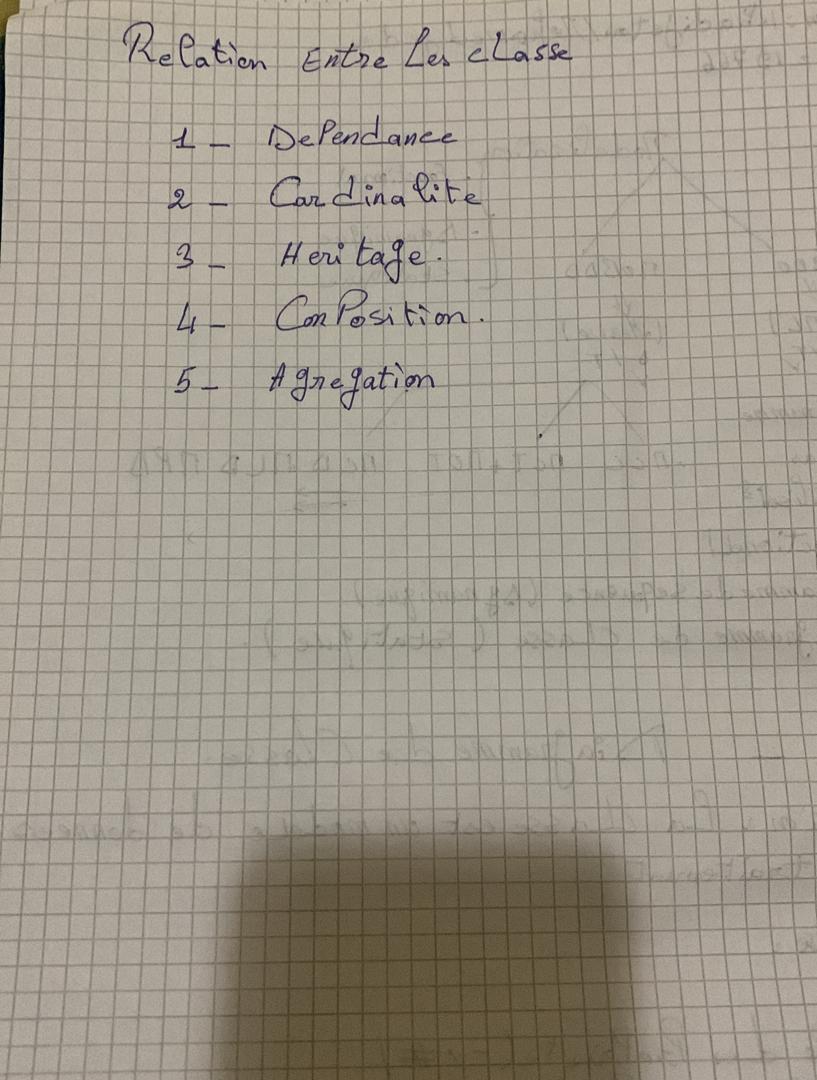 Relation Entre Les classe
1 - Dependance
2 - Cardinalité
3 - Heritage.
4 - ConPosition.
5 - Agregation